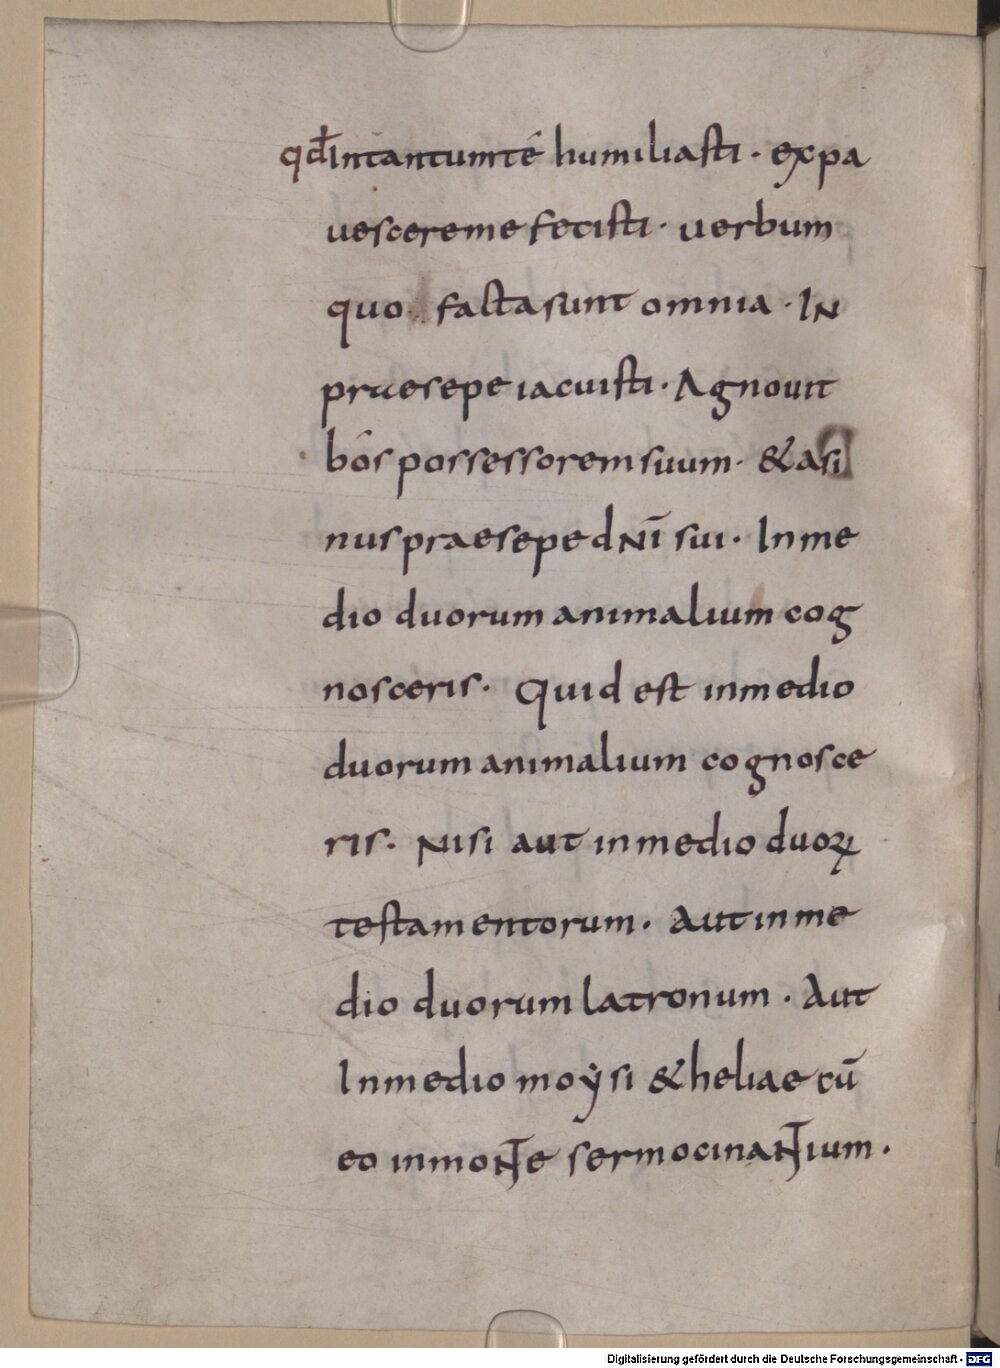 qđ Intantumté humiliasti · expa
uescereme fecisti · uerbum
quo factasunt omnia · IN
praesepe iacuisti · Agnouit
bós possessoremsuum · & asi
nus praesepe dNī sui · Inme
dio duorum animalium cog
nosceris · Quid est inmedio
duorum animalium cognosce
ris · Nisi aut inmedio duoꝝ
testamentorum · Aut inme
dio duorum latronum · Aut
Inmedio moẏsi & heliae cū
eo inmoNTe sermocinaNTium ·
Digitalisierung gefördert durch die Deutsche Forschungsgemeinschaft - DFG